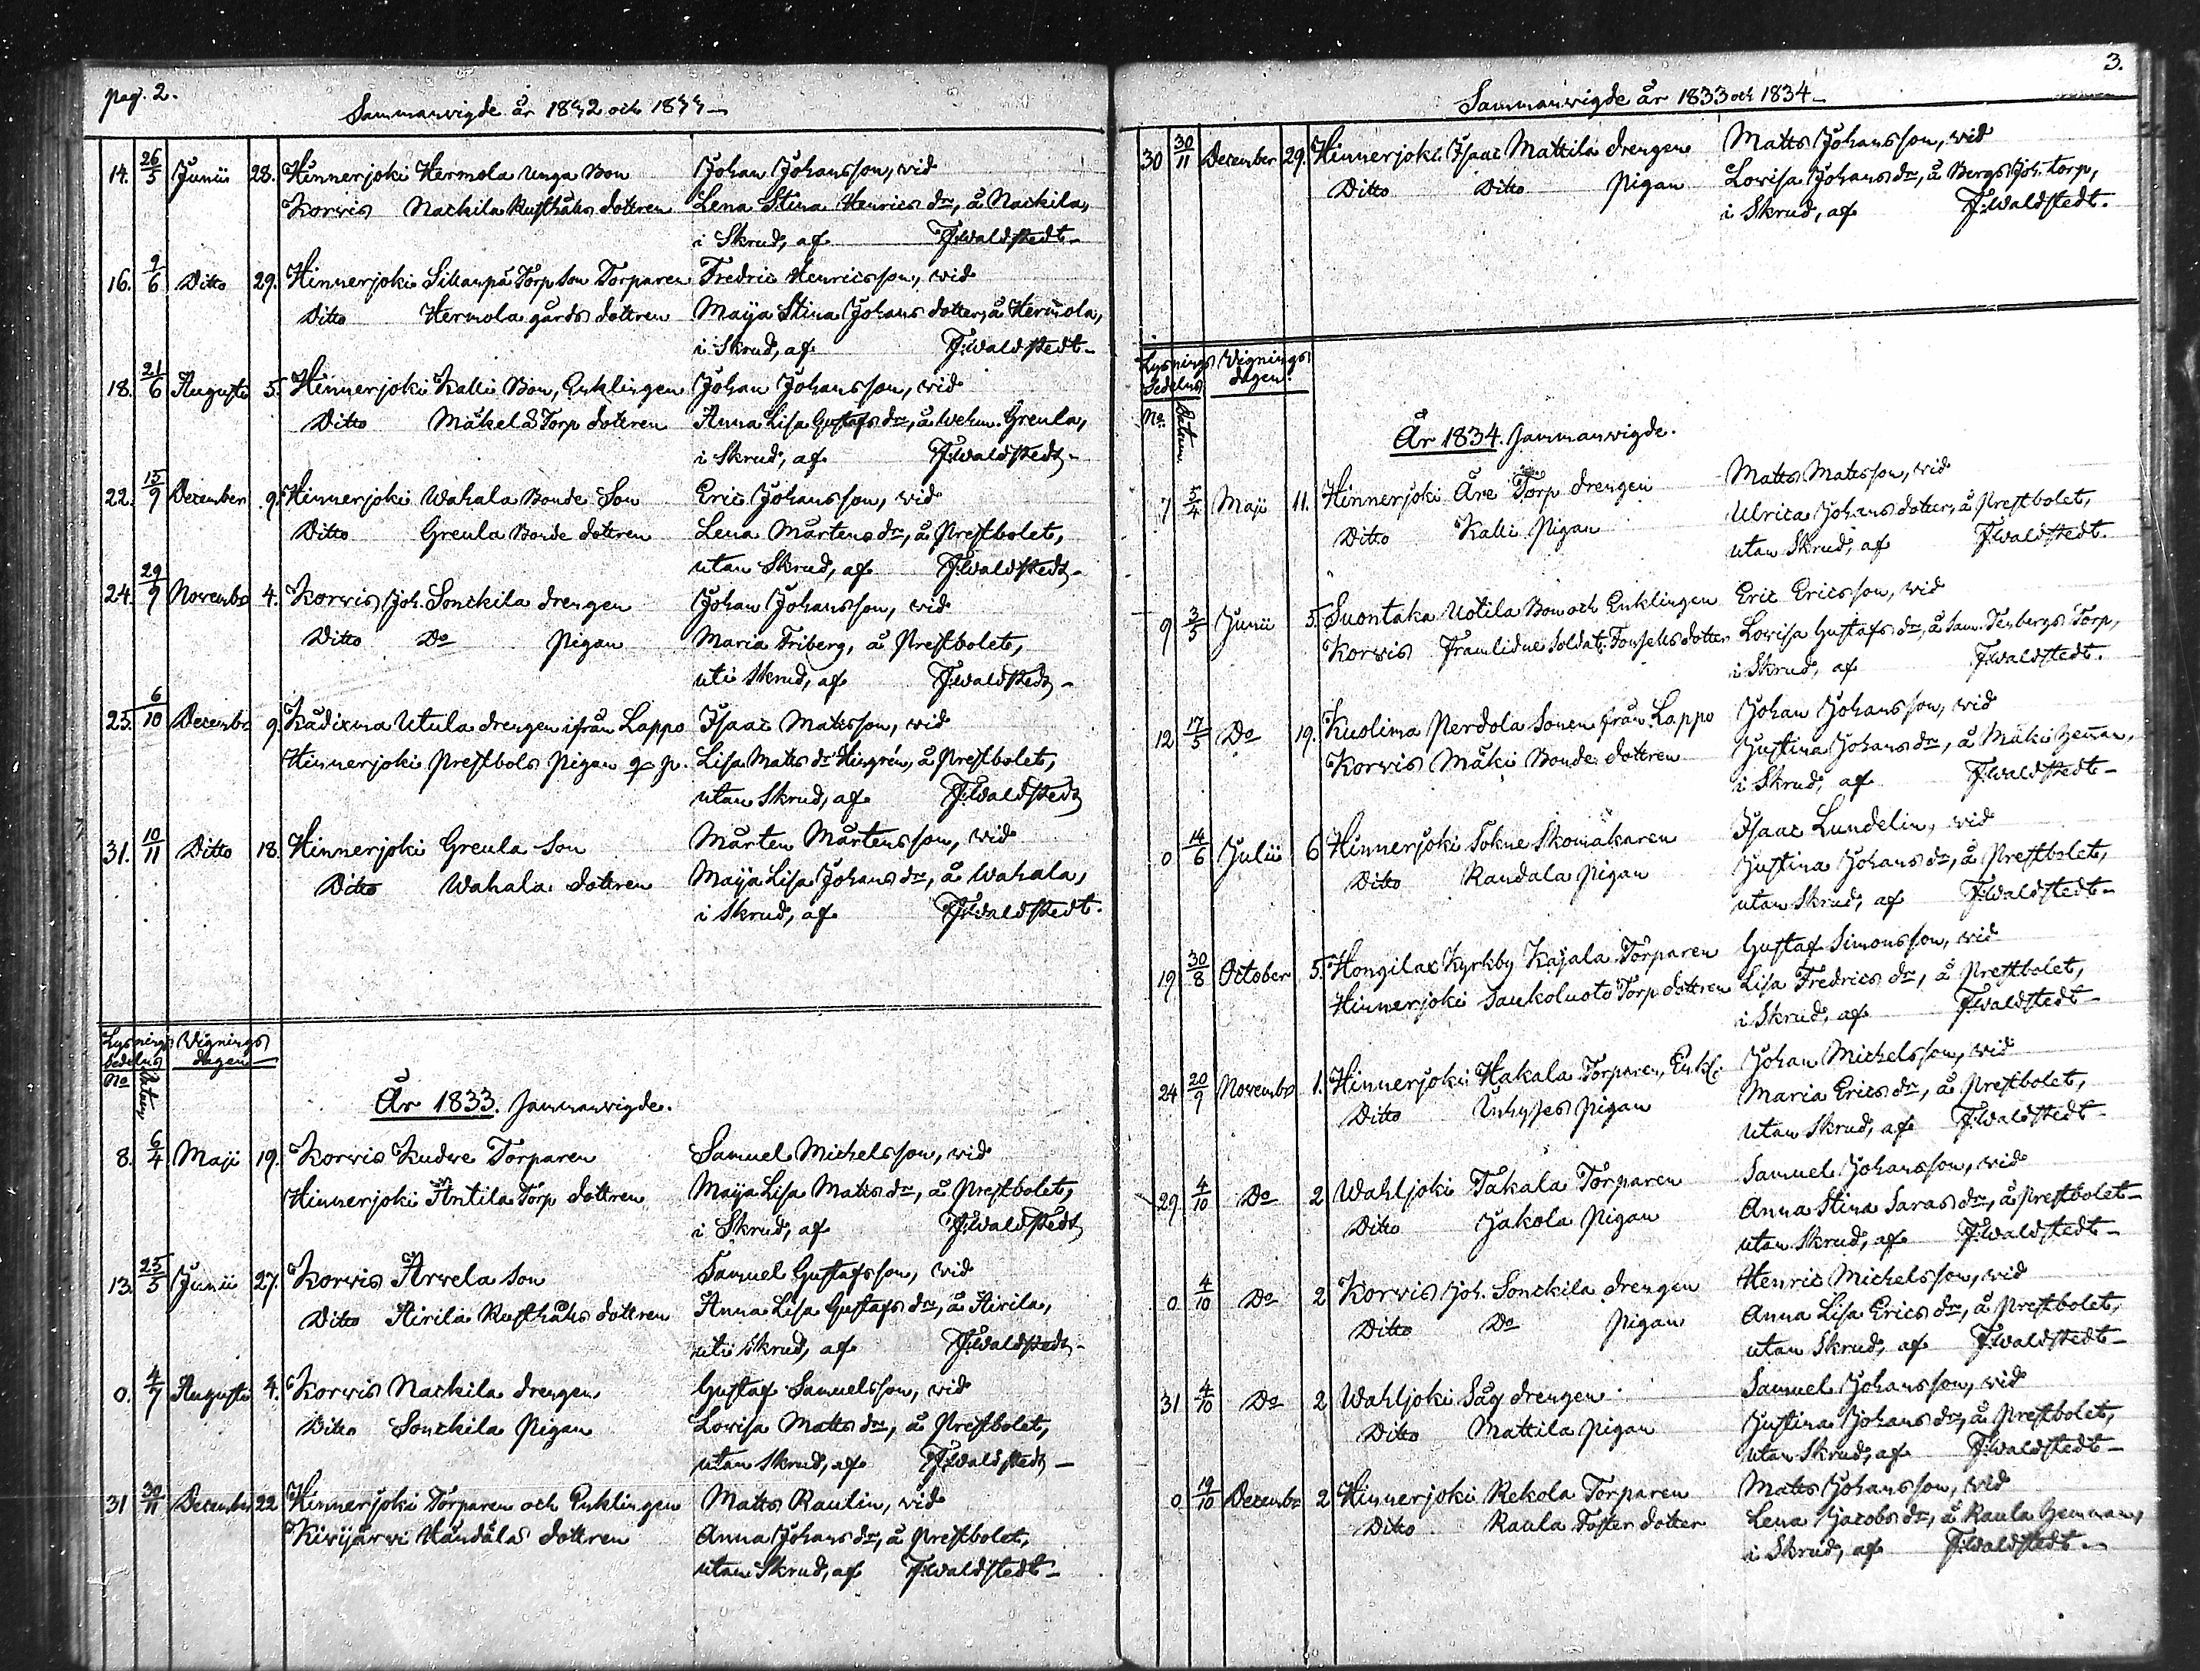 pag. 2.
Sammanvigde år 1832 och 1833
14. 26/5 Junii 28. Hinnerjoki Hermola unga Bon Johan Johansson, vid
Korvis Nackila Rusthålls dottren Lena Stina Henrics dr, å Nackila,
i Skrud, af F:Waldstedt
16. 9/6 Ditto 29. Hinnerjoki Sikanpä Torp Son Torparen Fredric Henricsson, vid
Ditto Hermola gårds dottren Maija Stina Johans dotter, å Hermola,
i Skrud, af F:Waldstedt
18. 21/6 Augusti 5. Hinnerjoki Kalli Bon, Enklingen Johan Johansson, vid
Ditto Mäkelä Torp dottren Anna Lisa Gustafs dr, å Wehm. Greula,
i Skrud, af F:Waldstedt
22. 15/9 December 9. Hinnerjoki Wahala Bonde Son Eric Johansson, vid
Ditto Greula Bonde dottren Lena Mårtens dr, å Prestbolet,
utan Skrud, af F:Waldstedt
24. 29/9 Novembr 4. Korvis Joh. Sonckila drengen Johan Johansson, vid
Ditto Do Pigan Maria Friberg, å Prestbolet,
uti Skrud, af F:Waldstedt
25. 6/10 Decembr 9. Kådixma Utula drengen ifrån Lappo Isaac Matsson, vid
Hinnerjoki Prestbols Pigan Lisa Matts dr Hingrén, å Prestbolet,
utan Skrud, af F:Waldstedt
31. 10/11 Ditto 18. Hinnerjoki Greula Son Mårten Mårtensson, vid
Ditto Wahala dottren Maija Lisa Johans dr, å Wahala,
i Skrud, af F:Waldstedt
Lysnings Vignings
Sedelns dagen
No Datum
År 1833. Sammanvigde.
8. 6/4 Maji 19. Korvis Kudre Torparen Samuel Michelsson, vid
Hinnerjoki Antila Torp dottren Maija Lisa Matts dr, å Prestbolet,
i Skrud, af F:Waldstedt
13. 25/5 Junii 27. Korvis Arvela Son Samuel Gustafsson, vid
Ditto Airila Rusthålls dottren Anna Lisa Gustafs dr, å Airila,
uti Skrud, af F:Waldstedt
0. 4/7 Augusti 4. Korvis Nackila drengen Gustaf Samuelsson, vid
Ditto Sonckila Pigan Lovisa Matts dr, å Prestbolet,
utan Skrud, af F:Waldstedt
31 30/11 December 22 Hinnerjoki Torparen och Enklingen Matts Raulin, vid
Kivijärvi Händälas dottren Anna Johans dr, å Prestbolet,
utan Skrud, af F:Waldstedt
3.
Sammanvigde år 1833 och 1834
30 30/11 December 29. Hinnerjoki Isaac Mattila drengen Matts Johansson, vid
Ditto Ditto Pigan Lovisa Johans dr, å Bergs Joh. Torp,
i Skrud, af F:Waldstedt.
Lysnings Vignings
Sedelns dagen.
No Datum
År 1834. Sammanvigde.
7 5/4 Maji 11. Hinnerjoki Åre Torp drengen Matts Matsson, vid
Ditto Kalli Pigan Ulrica Johans dotter, å Prestbolet,
utan Skrud, af F:Waldstedt.
9 3/5 Junii 5. Suontaka Uotila Bon och Enklingen Eric Ericsson, vid
Korvis Framlidne Soldat dotter Lovisa Gustafs dr, å Sam. Tenbergs Torp,
i Skrud, af F:Waldstedt.
12 17/5 Do 19. Kuolima Perdola Sonen från Lappo Johan Johansson, vid
Korvis Mäki Bonde dottren Justina Johans dr, å Mäki Heman,
i Skrud, af F:Waldstedt
0 14/6 Julii 6 Hinnerjoki Sokne Skomakaren Isaac Lundelin, vid
Ditto Raudala Pigan Justina Johans dr, å Prestbolet,
utan Skrud, af F:Waldstedt
19 30/8 October 5. Hongilax Kyrkby Kajala Torparen Gustaf Simonsson, vid
Hinnerjoki Saukoluoto Torp dottren Lisa Fredrics dr, å Prestbolet,
i Skrud, af F:Waldstedt
24 20/9 Novembr 1. Hinnerjoki Hakala Torparen, Enkl: Johan Michelsson, vid
Ditto Pigan Maria Erics dr, å Prestbolet,
utan Skrud, af F:Waldstedt
29 4/10 Do 2 Wahljoki Takala Torparen Samuel Johansson, vid
Ditto Jakola Pigan Anna Stina Saras dr, å Prestbolet
utan Skrud, af F:Waldstedt
0 4/10 Do 2 Korvis Joh. Sonckila drengen Henric Michelsson, vid
Ditto Do Pigan Anna Lisa Erics dr, å Prestbolet,
utan Skrud, af F:Waldstedt
31 4/10 Do 2 Wahljoki Såg drengen Samuel Johansson, vid
Ditto Mattila Pigan Justina Johans dr, å Prestbolet,
utan Skrud, af F:Waldstedt
0 19/10 Decembr 2 Hinnerjoki Rekola Torparen Matts Johansson, vid
Ditto Raula Foster dotter Lena Jacobs dr, å Raula Hemman,
i Skrud, af F:Waldstedt